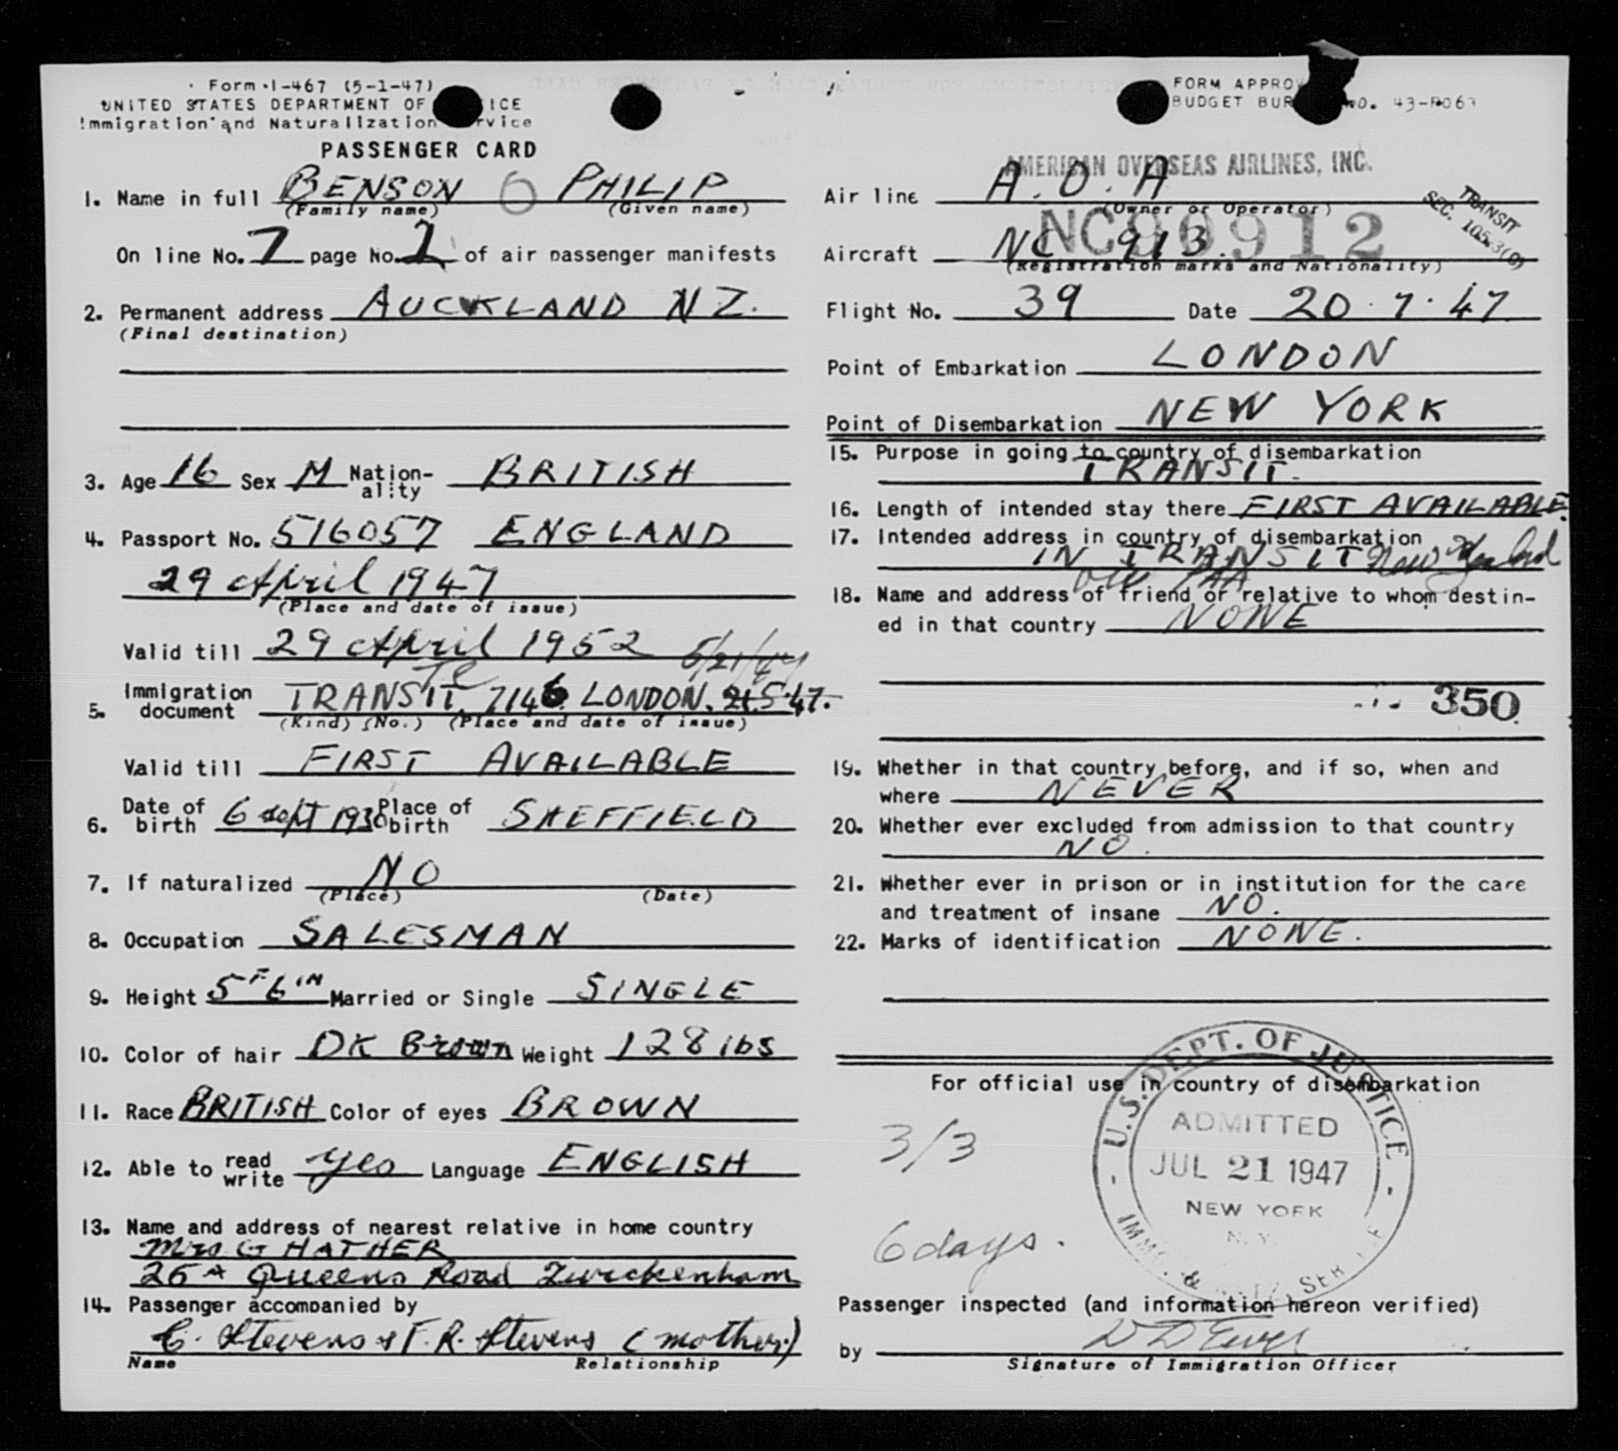 Form I-467 (5-1-47)
UNITED STATES DEPARTMENT OF ICE
Immigration and Naturalization rvice
PASSENGER CARD
1. Name in full BENSON 6 PHILIP
(Family name) (Given name)
On line No. 7 page No. of air passenger manifests
2. Permanent address AUCKLAND NZ.
(Final destination)
3. Age 16 Sex M Nation-ality BRITISH
4. Passport No. 516057 ENGLAND
29 April 1947
(Place and date of issue)
Valid till 29 April 1952
5. Immigration document TRANSIT 7146 LONDON. 21.5.47.
5/21/47
(Kind) (No.) (Place and date of issue)
Valid till FIRST AVAILABLE
6. Date of birth 6 Sept 1930 Place of birth SHEFFIELD
7. If naturalized NO
(Place) (Date)
8. Occupation SALESMAN
9. Height 5F 6IN Married or Single SINGLE
10. Color of hair DK Brown Weight 128 lbs
11. Race BRITISH Color of eyes BROWN
12. Able to read write yes Language ENGLISH
13. Name and address of nearest relative in home country
Mrs G HATHER
26A Queens Road Twickenham
14. Passenger accompanied by
C. Stevens & F. R. Stevens (mother)
Name Relationship
FORM APPRO
BUDGET BUR NO. 43-R067
AMERICAN OVERSEAS AIRLINES, INC.
Air line A.O.A
(Owner or Operator)
TRANSIT
SEC. 105.3(0)
Aircraft NC 913.
NC90912
(Registration marks and Nationality)
Flight No. 39 Date 20.7.47
Point of Embarkation LONDON
Point of Disembarkation NEW YORK
15. Purpose in going to country of disembarkation
TRANSIT.
16. Length of intended stay there FIRST AVAILABLE.
17. Intended address in country of disembarkation
IN TRANSIT New Zealand
PAA
18. Name and address of friend or relative to whom destin-
ed in that country NONE
350
19. Whether in that country before, and if so, when and
where NEVER
20. Whether ever excluded from admission to that country
NO.
21. Whether ever in prison or in institution for the care
and treatment of insane NO.
22. Marks of identification NONE.
For official use in country of disembarkation
3/3
6 days.
U.S. DEPT. OF JUSTICE
ADMITTED
JUL 21 1947
NEW YORK
N.Y.
IMM. &
Passenger inspected (and information hereon verified)
by
Signature of Immigration Officer